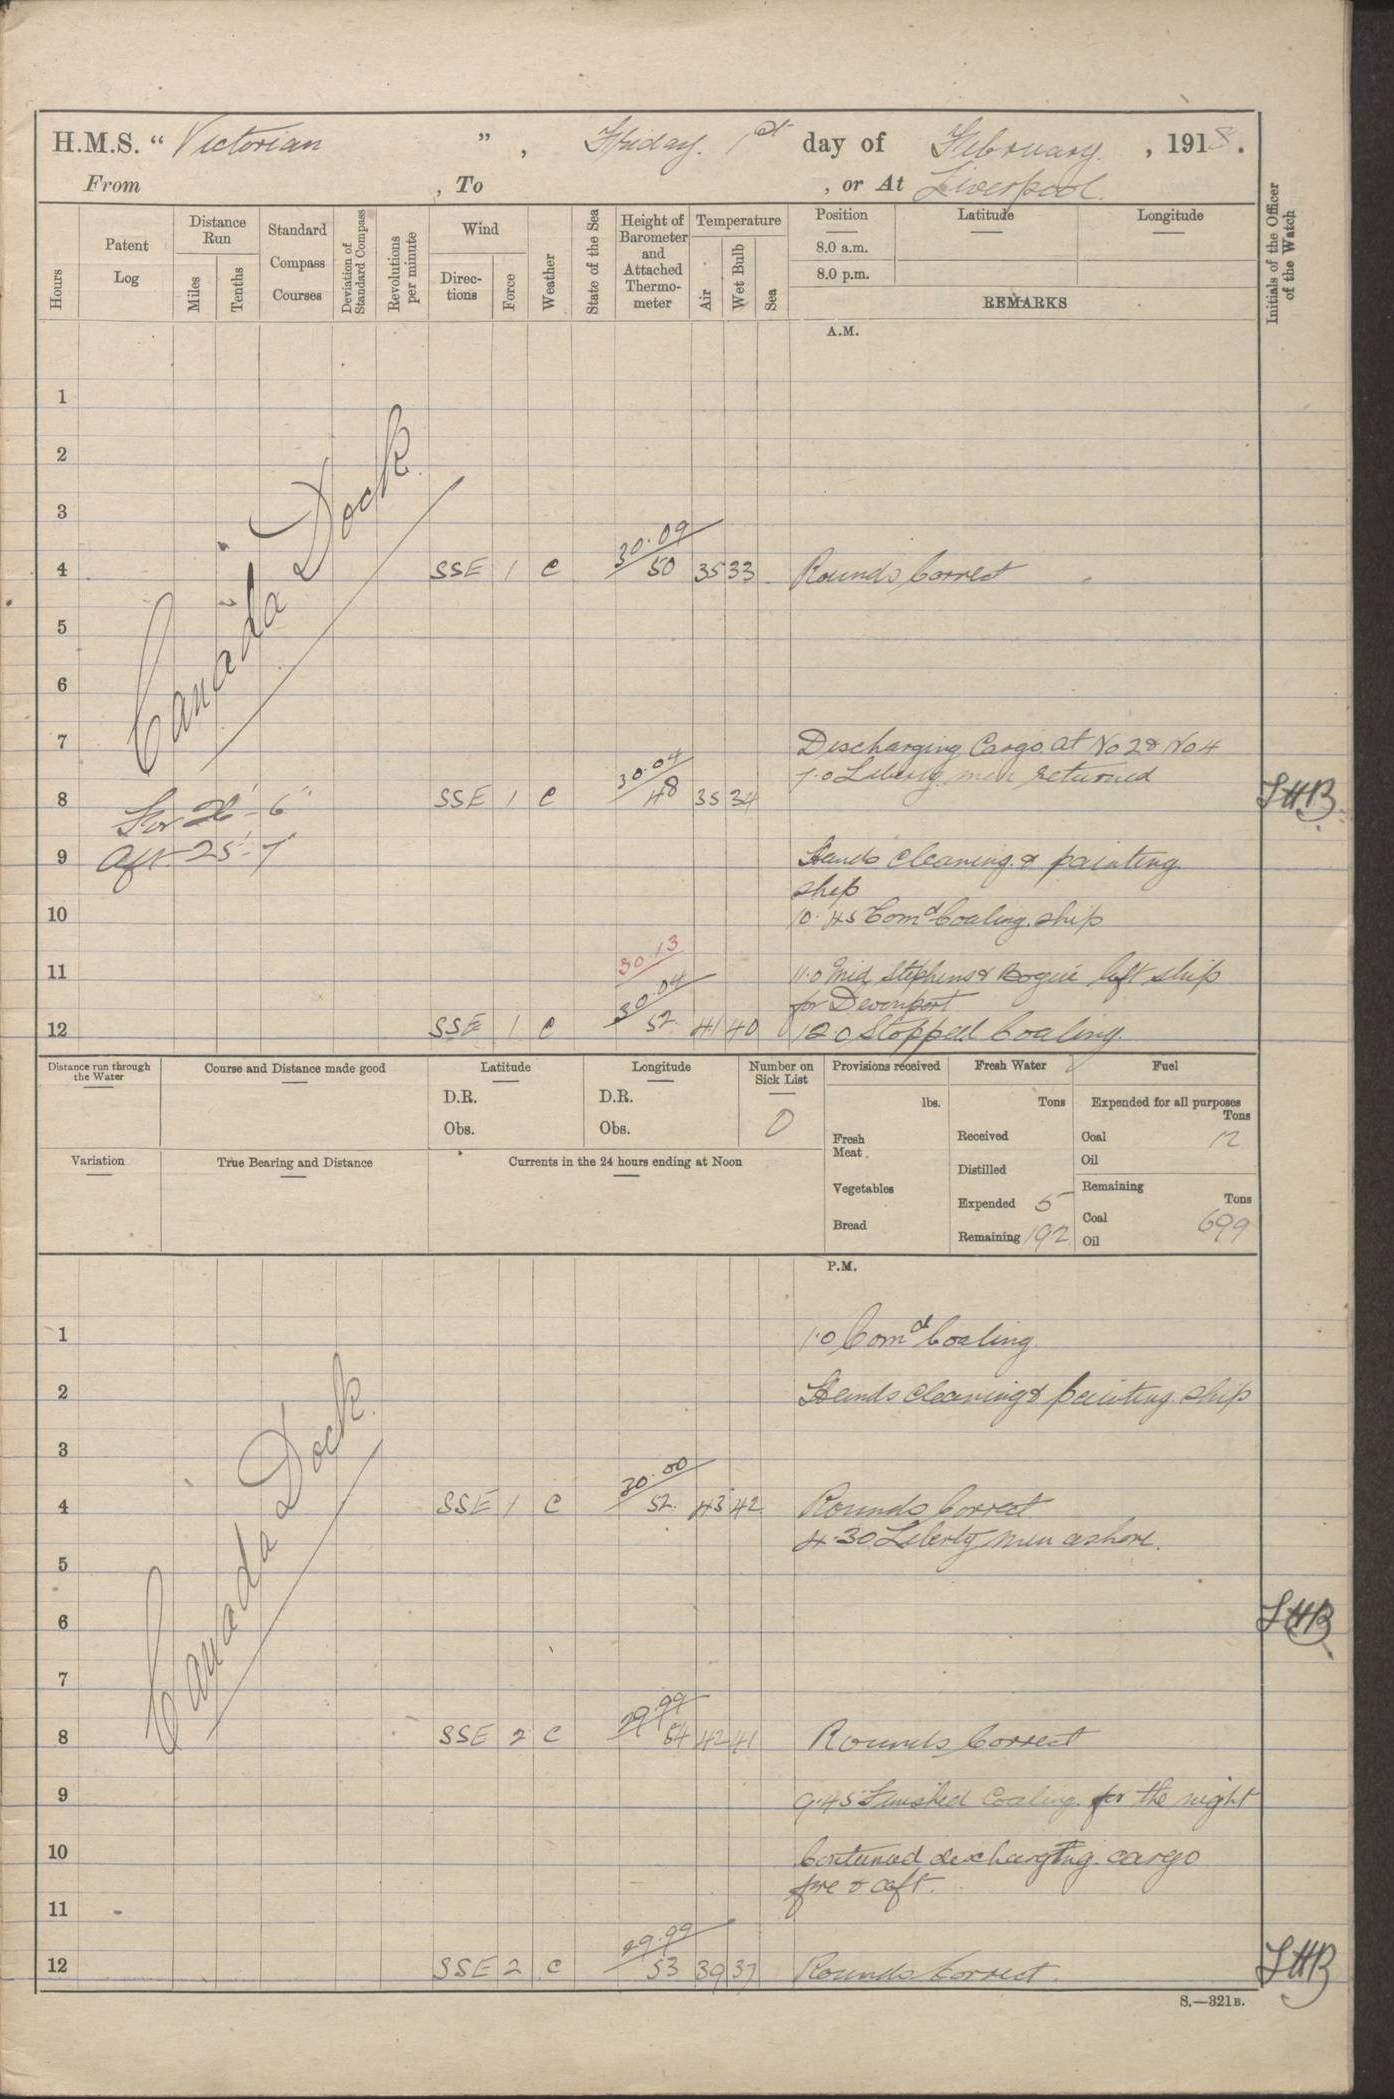 H.M.S. “ Victorian ” , Friday. 1st day of February. , 1918.
From , To , or At Liverpool.
Hours
Patent Log
Distance Run
Miles
Tenths
Standard Compass Courses
Deviation of Standard Compass
Revolutions per minute
Wind
Direc-tions
Force
Weather
State of the Sea
Height of Barometer and Attached Thermo-meter
Temperature
Air
Wet Bulb
Sea
Position Latitude Longitude
8.0 a.m.
8.0 p.m.
REMARKS
Initials of the Officer of the Watch
A.M.
1
2
3
Canada Dock
30.09
4 SSE 1 c 50 35 33 Rounds Correct
5
6
7 Discharging Cargo at No 2 & No 4
30.04 7.0 Liberty men returned
8 For 26'-6" SSE 1 c 48 35 34 SHB
9 Aft 25'-7 Hands cleaning & painting
ship
10 10.45 Comd Coaling ship
30.13
11 11.0 Mid Stephens & Bogue left ship
30.04 for Devonport
12 SSE 1 c 52 41 40 12.0 Stopped Coaling.
Distance run through the Water
Course and Distance made good
Latitude
D.R.
Obs.
Longitude
D.R.
Obs.
Number on Sick List
0
Variation
True Bearing and Distance
Currents in the 24 hours ending at Noon
Provisions received
lbs.
Fresh Meat
Vegetables
Bread
Fresh Water
Tons
Received
Distilled
Expended 5
Remaining 192
Fuel
Expended for all purposes
Tons
Coal 12
Oil
Remaining
Tons
Coal 699
Oil
P.M.
1 1.0 Comd Coaling.
2 Hands cleaning & painting ship
3
Canada Dock.
30.00
4 SSE 1 c 52 43 42 Rounds Correct
4.30 Liberty men ashore.
5
6 SHB
7
29.99
8 SSE 2 c 54 42 41 Rounds Correct
9 9.45 Finished Coaling for the night
10 Continued discharging cargo
fore & aft.
11
29.99
12 SSE 2 c 53 39 37 Rounds Correct. SHB
S.—321B.